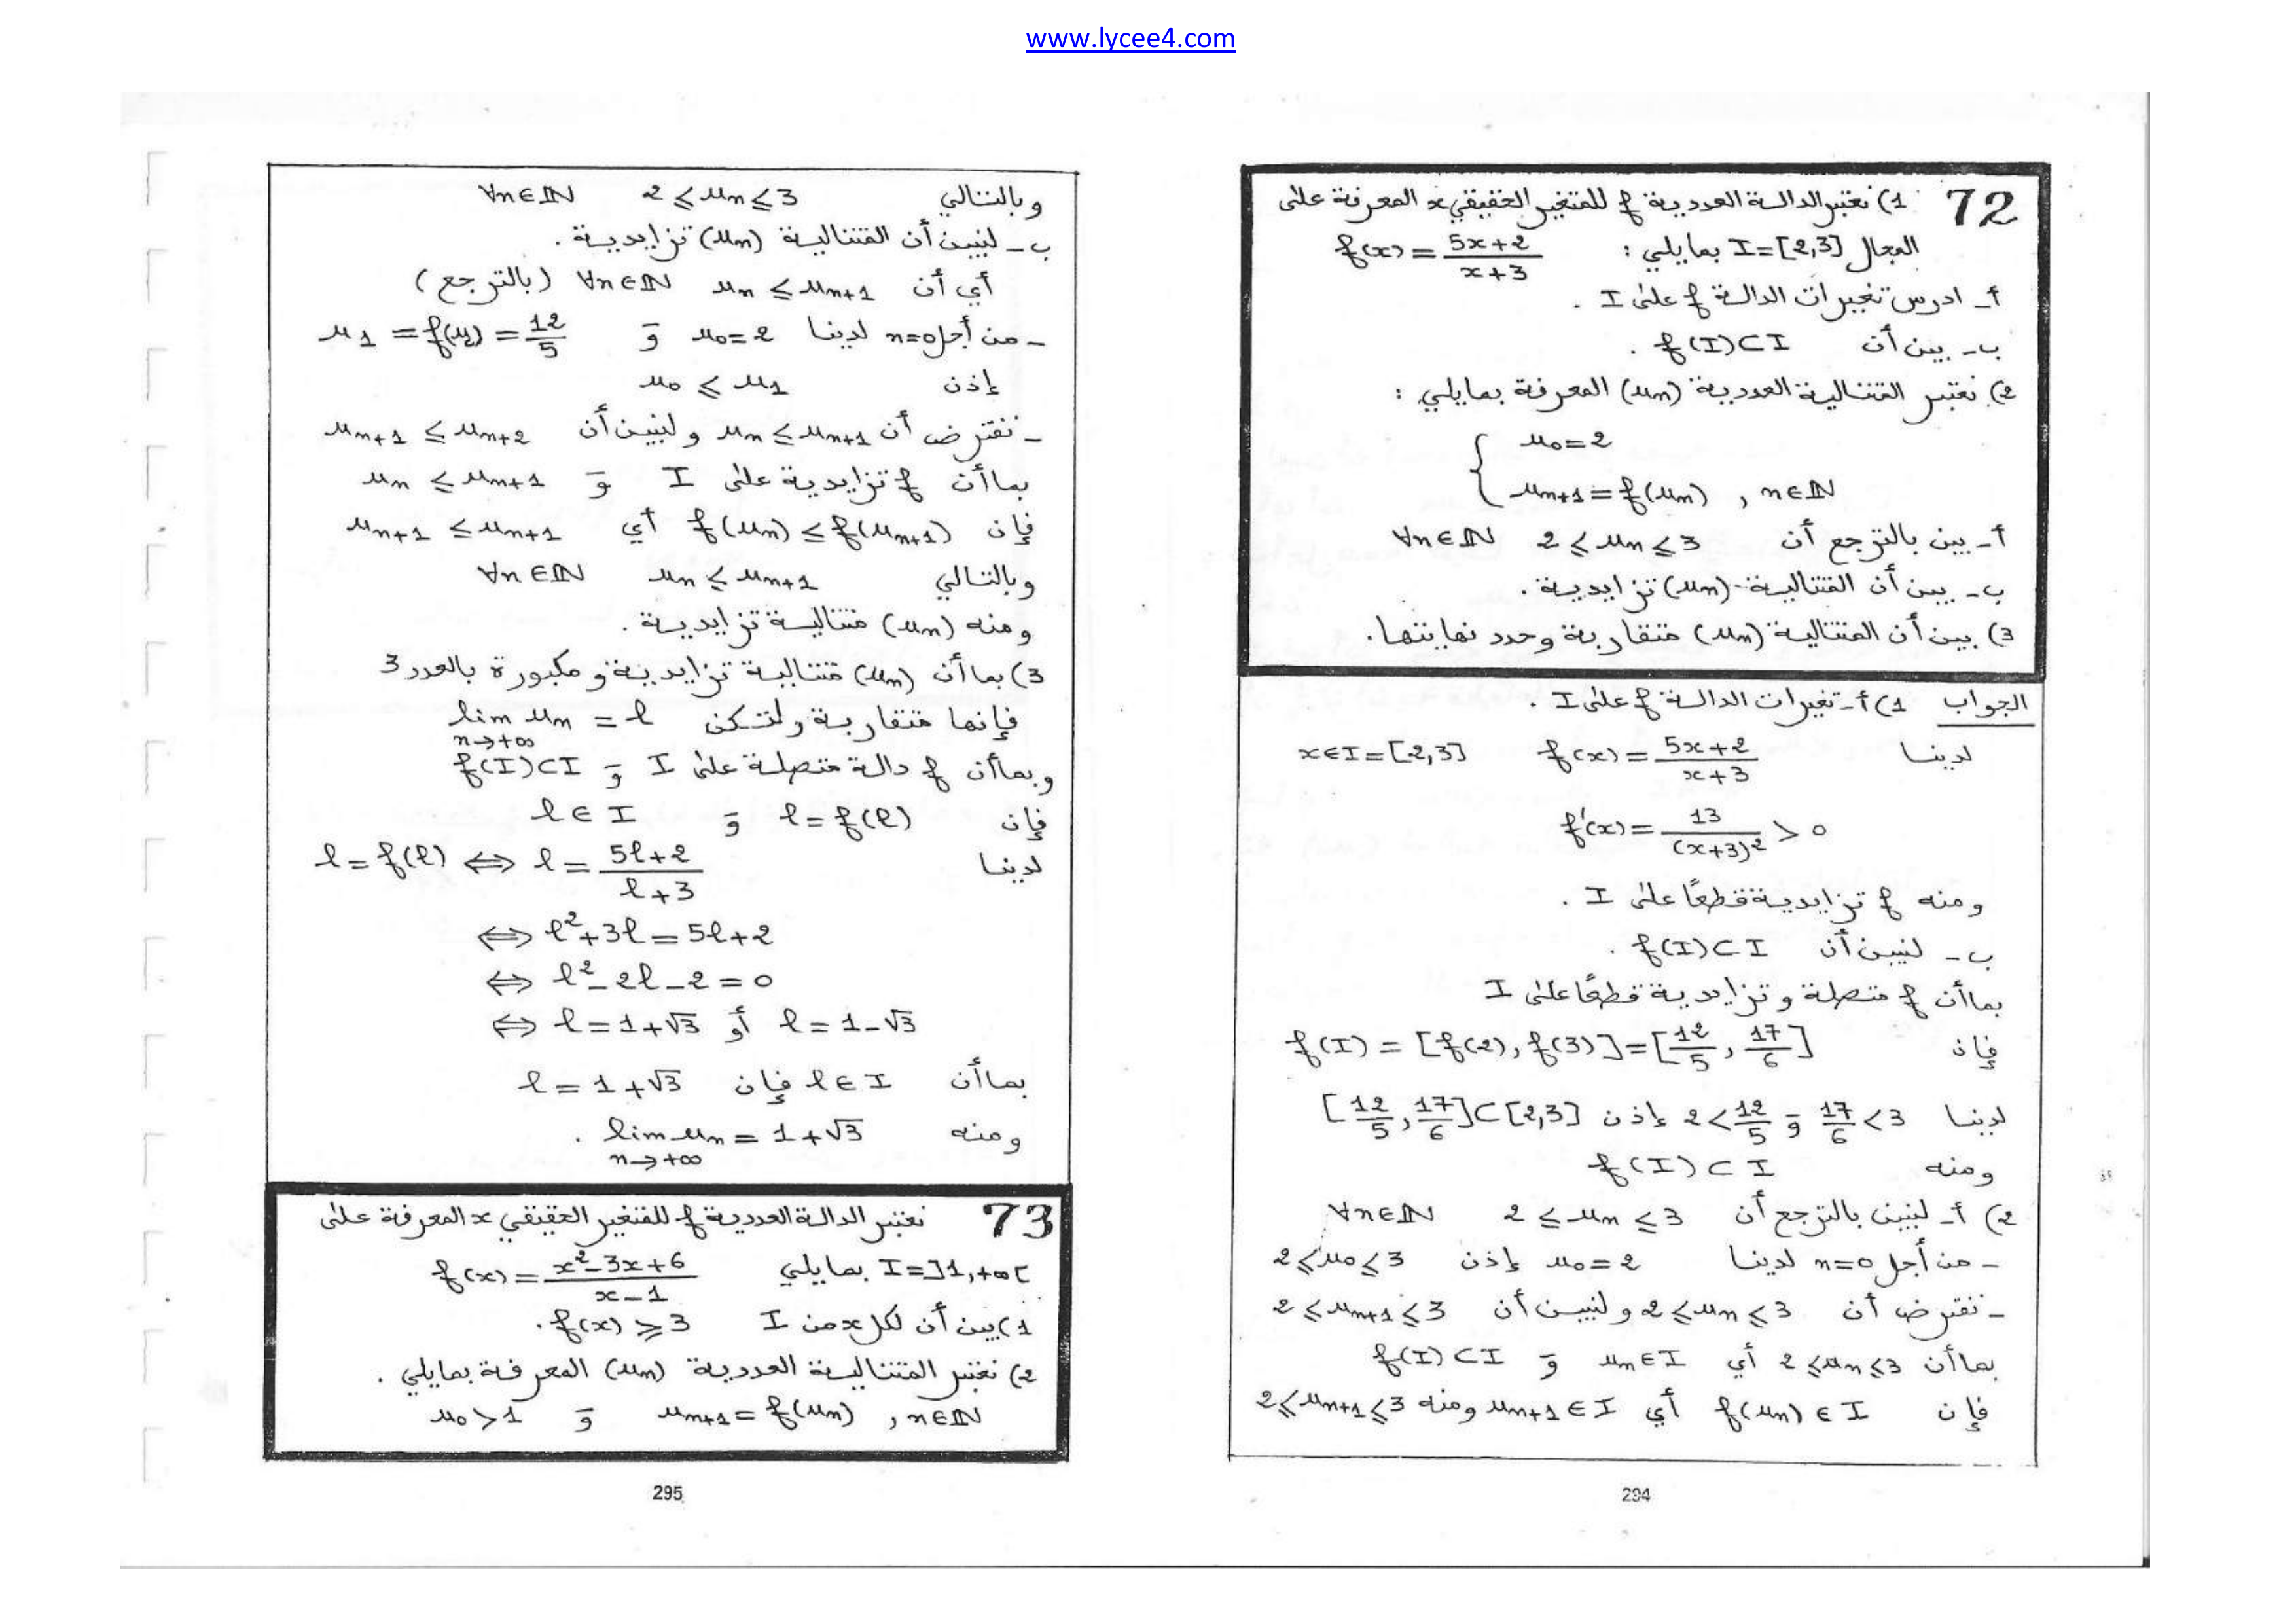 www.lycee4.com
72 1) نعتبر الدالة العددية f للمتغير الحقيقي x المعرفة على
المجال I=[2,3] بمايلي : f(x) = (5x+2)/(x+3)
أ_ ادرس تغيرات الدالة f على I .
ب_ بين أن f(I)⊂I .
2) نعتبر المتتالية العددية (un) المعرفة بمايلي :
{ u0=2
un+1=f(un) , n∈ℕ
أ_ بين بالترجع أن 2⩽un⩽3 ∀n∈ℕ
ب_ بين أن المتتالية (un) تزايدية .
3) بين أن المتتالية (un) متقاربة وحدد نهايتها.
الجواب 1) أ_ تغيرات الدالة f على I .
لدينا f(x) = (5x+2)/(x+3) x∈I=[2,3]
f'(x) = 13/(x+3)² > 0
ومنه f تزايدية قطعًا على I .
ب_ لنبين أن f(I)⊂I .
بما أن f متصلة و تزايدية قطعًا على I
فإن f(I) = [f(2), f(3)] = [12/5, 17/6]
لدينا 17/6<3 وَ 2<12/5 إذن [12/5, 17/6]⊂[2,3]
ومنه f(I)⊂I
2) أ_ لنبين بالترجع أن 2⩽un⩽3 ∀n∈ℕ
_ من أجل n=0 لدينا u0=2 إذن 2⩽u0⩽3
_ نفترض أن 2⩽un⩽3 ولنبين أن 2⩽un+1⩽3
بما أن 2⩽un⩽3 أي un∈I وَ f(I)⊂I
فإن f(un)∈I أي un+1∈I ومنه 2⩽un+1⩽3
294
وبالتالي 2⩽un⩽3 ∀n∈ℕ
ب_ لنبين أن المتتالية (un) تزايدية .
أي أن un⩽un+1 ∀n∈ℕ (بالترجع)
_ من أجل n=0 لدينا u0=2 وَ u1=f(u0)=12/5
إذن u0⩽u1
_ نفترض أن un⩽un+1 ولنبين أن un+1⩽un+2
بما أن f تزايدية على I وَ un⩽un+1
فإن f(un)⩽f(un+1) أي un+1⩽un+1
وبالتالي un⩽un+1 ∀n∈ℕ
ومنه (un) متتالية تزايدية .
3) بما أن (un) متتالية تزايدية و مكبورة بالعدد 3
فإنها متقاربة ولتكن lim un = l
n→+∞
وبما أن f دالة متصلة على I وَ f(I)⊂I
فإن l=f(l) وَ l∈I
لدينا l=f(l) ⟺ l=(5l+2)/(l+3)
⟺ l²+3l=5l+2
⟺ l²_2l_2=0
⟺ l=1+√3 أو l=1-√3
بما أن l∈I فإن l=1+√3
ومنه lim un = 1+√3 .
n→+∞
73 نعتبر الدالة العددية f للمتغير الحقيقي x المعرفة على
I=]1,+∞[ بمايلي f(x) = (x²-3x+6)/(x-1)
1) بين أن لكل x من I f(x)⩾3.
2) نعتبر المتتالية العددية (un) المعرفة بمايلي .
un+1=f(un) , n∈ℕ وَ u0>1
295